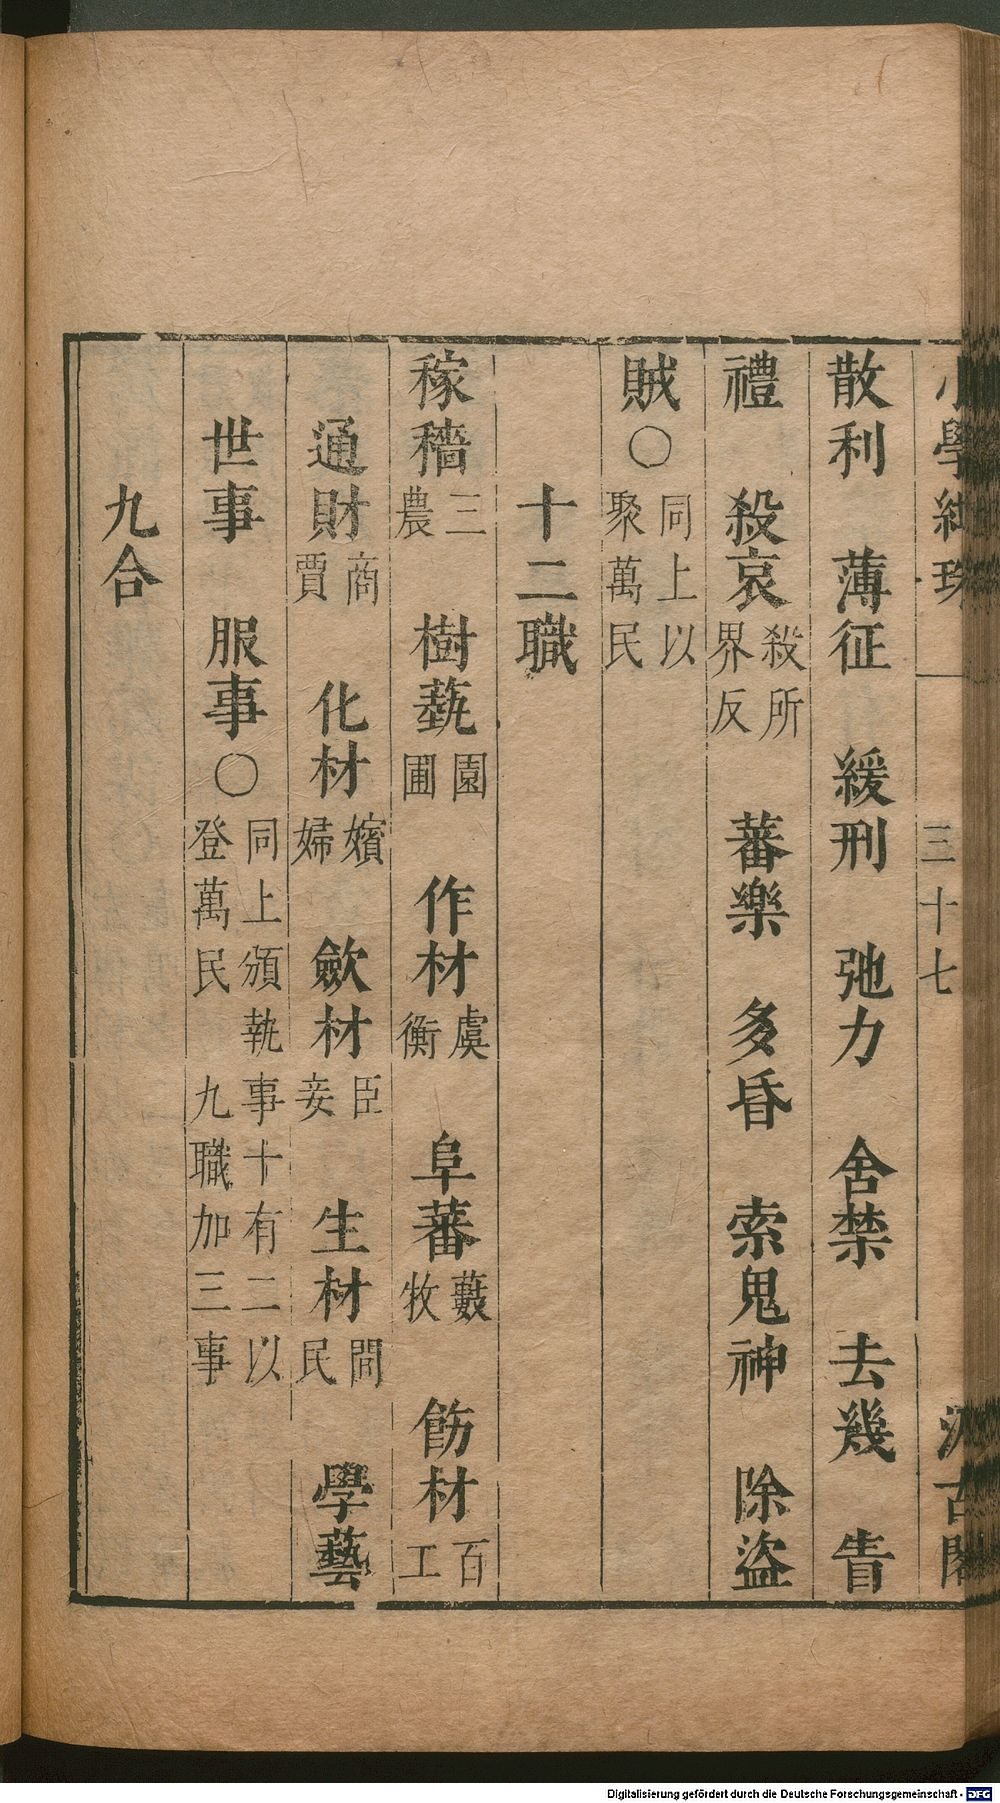 小學紺珠 三十七 汲古閣
散利 薄征 緩刑 弛力 舍禁 去幾 眚
禮 殺哀殺所界反 蕃樂 多昏 索鬼神 除盜
賊○同上以聚萬民
十二職
稼穡三農 樹蓺園圃 作材虞衡 阜蕃藪牧 飭材百工
通財商賈 化材嬪婦 斂材臣妾 生材閒民 學藝
世事 服事○同上頒執事十有二以登萬民九職加三事
九合
Digitalisierung gefördert durch die Deutsche Forschungsgemeinschaft - DFG